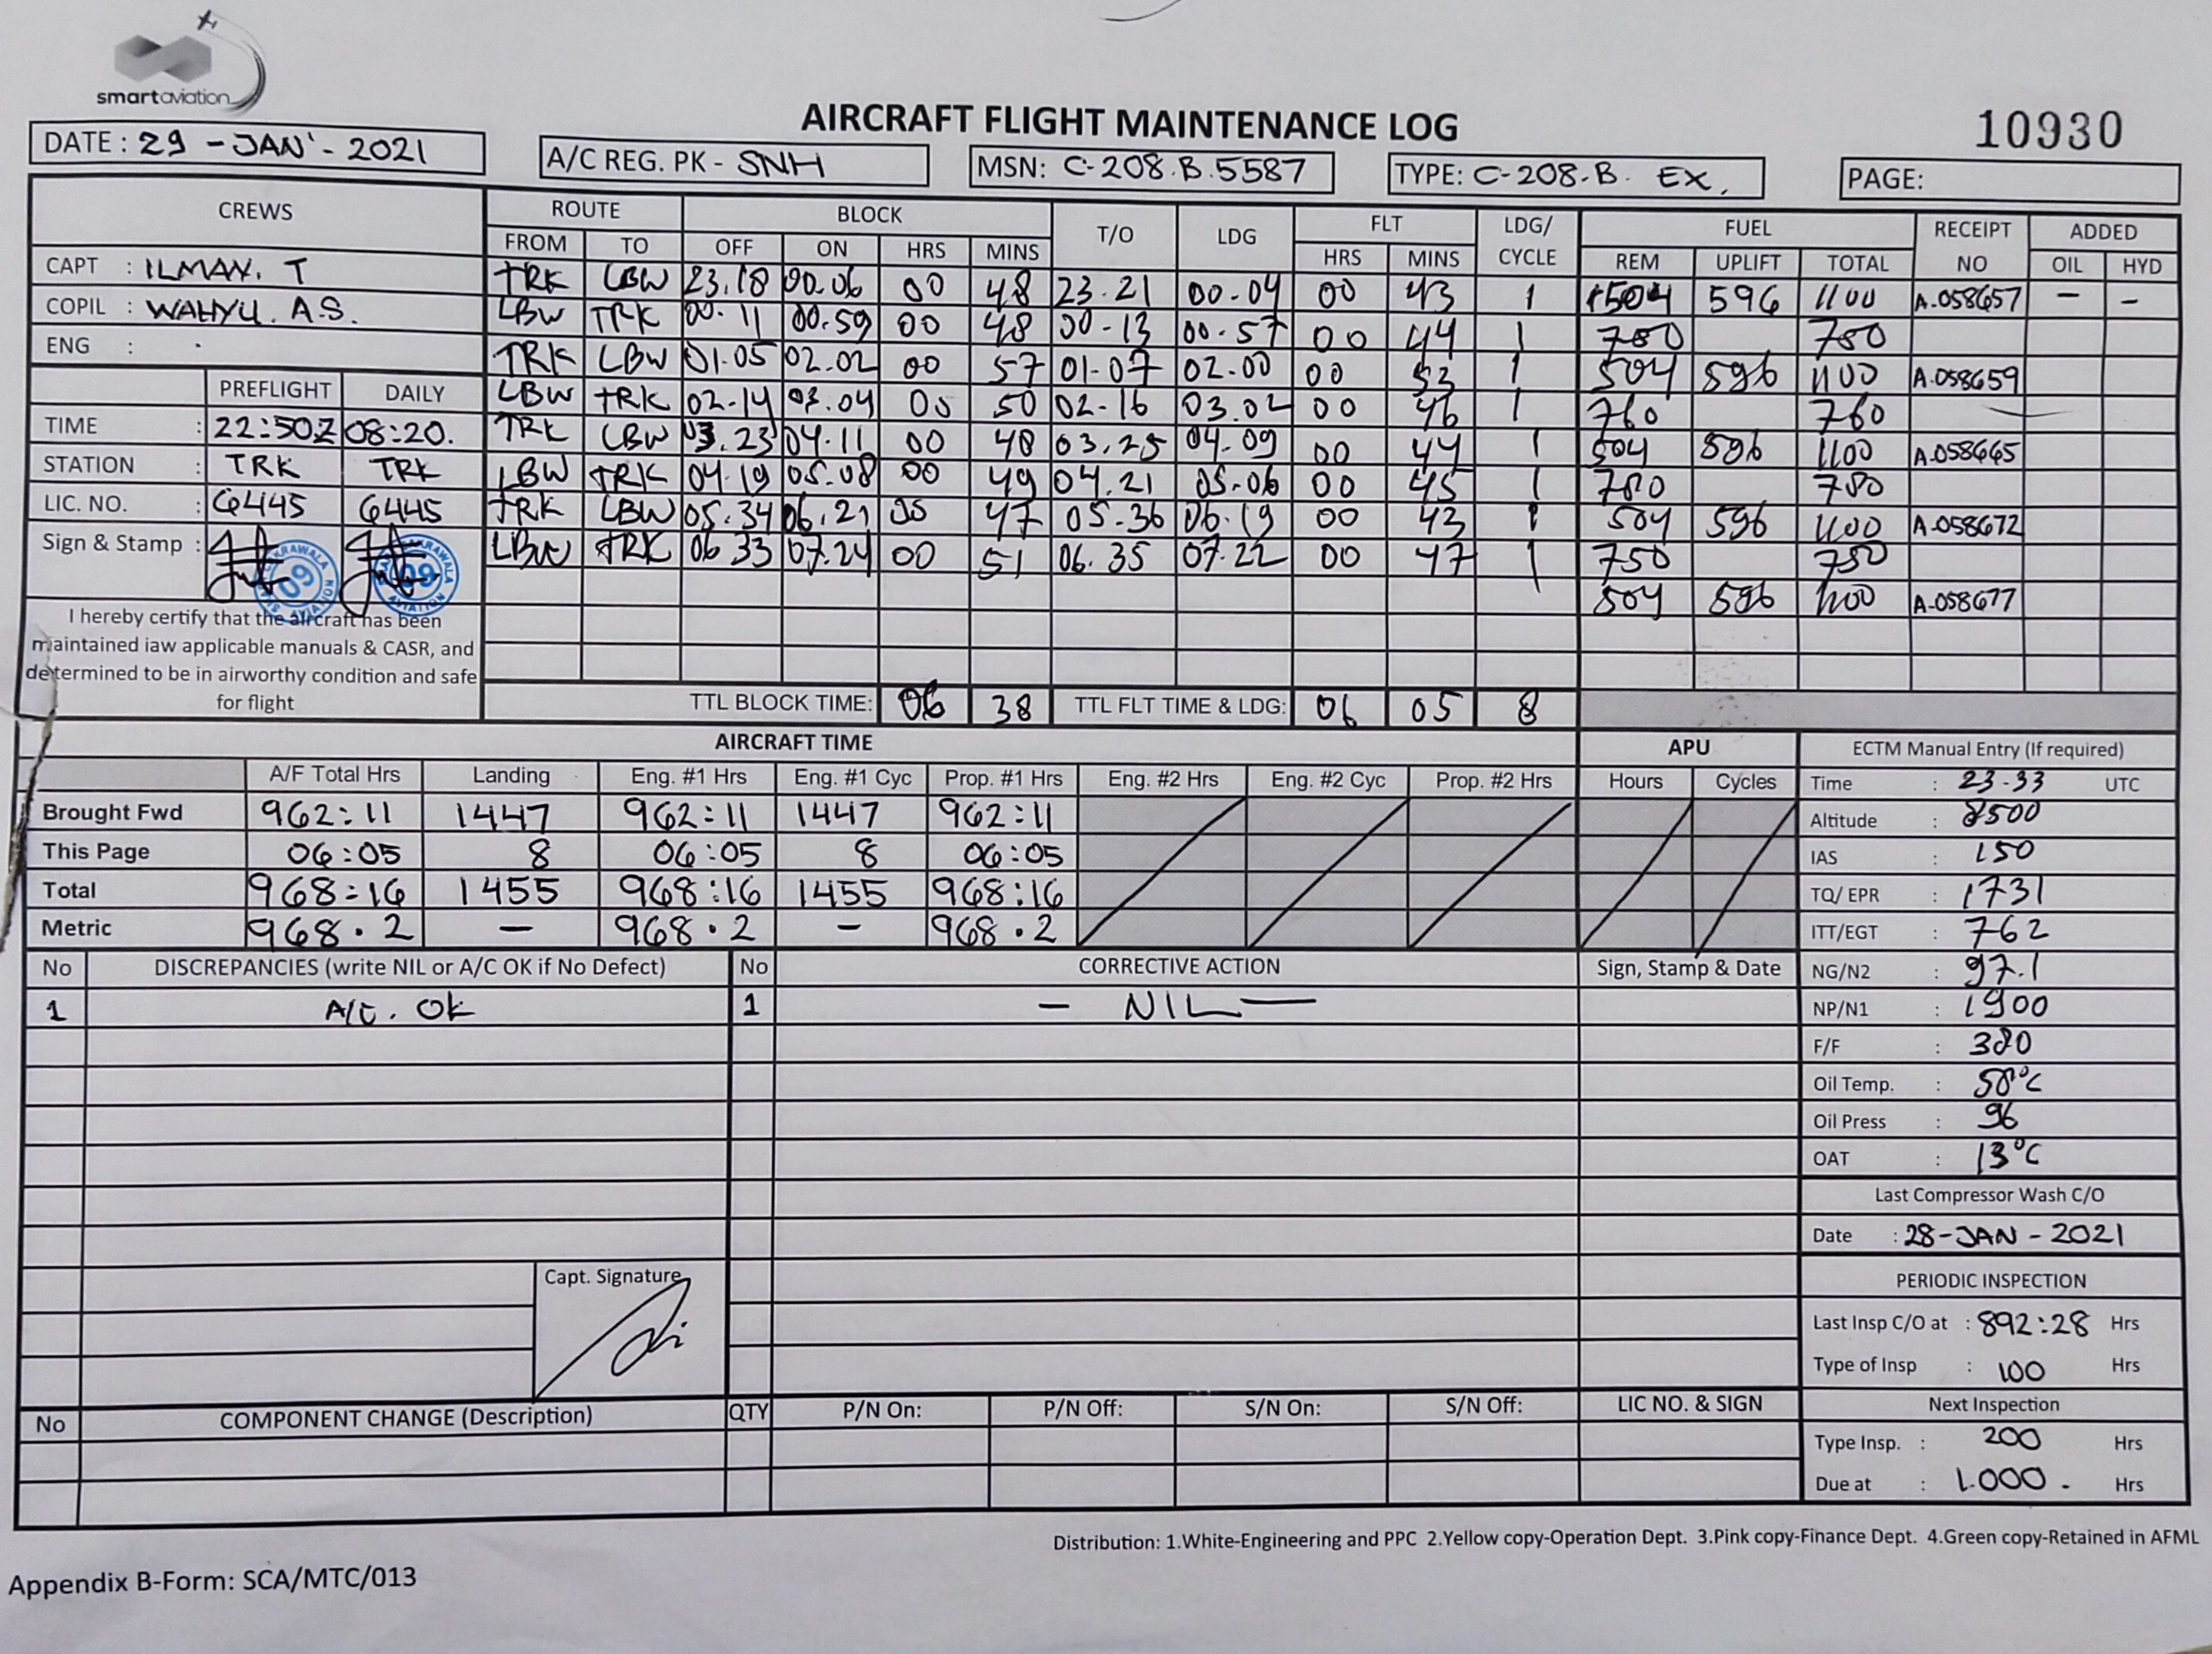 smartaviation
AIRCRAFT FLIGHT MAINTENANCE LOG
10930
DATE : 29 - JAN' - 2021
A/C REG. PK - SNH
MSN: C-208.B.5587
TYPE: C-208.B. EX.
PAGE:
CREWS
CAPT : ILMAN. T
COPIL : WAHYU. A.S.
ENG :
PREFLIGHT DAILY
TIME : 22:50Z 08:20.
STATION : TRK TRK
LIC. NO. : 6445 6445
Sign & Stamp :
I hereby certify that the aircraft has been
maintained iaw applicable manuals & CASR, and
determined to be in airworthy condition and safe
for flight
ROUTE BLOCK T/O LDG FLT LDG/ CYCLE FUEL RECEIPT NO ADDED
FROM TO OFF ON HRS MINS HRS MINS REM UPLIFT TOTAL OIL HYD
TRK LBW 23.18 00.06 00 48 23.21 00-04 00 43 1 1504 596 1100 A.058657 - -
LBW TRK 00.11 00.59 00 48 00-13 00.57 00 44 1 780 780
TRK LBW 01.05 02.02 00 57 01-07 02.00 00 53 1 504 596 1100 A.058659
LBW TRK 02-14 03.04 00 50 02-16 03.02 00 46 1 760 760
TRK LBW 03.23 04.11 00 48 03.25 04.09 00 44 1 504 596 1100 A.058665
LBW TRK 04.19 05.08 00 49 04.21 05.06 00 45 1 780 780
TRK LBW 05.34 06.21 00 47 05.36 06.19 00 43 1 504 596 1100 A.058672
LBW TRK 06 33 07.24 00 51 06.35 07.22 00 47 1 750 750
504 596 1100 A.058677
TTL BLOCK TIME: 06 38 TTL FLT TIME & LDG: 06 05 8
AIRCRAFT TIME
APU
A/F Total Hrs Landing Eng. #1 Hrs Eng. #1 Cyc Prop. #1 Hrs Eng. #2 Hrs Eng. #2 Cyc Prop. #2 Hrs Hours Cycles
Brought Fwd 962:11 1447 962:11 1447 962:11
This Page 06:05 8 06:05 8 06:05
Total 968:16 1455 968:16 1455 968:16
Metric 968.2 - 968.2 - 968.2
ECTM Manual Entry (If required)
Time : 23-33 UTC
Altitude : 8500
IAS : 150
TQ/ EPR : 1731
ITT/EGT : 762
NG/N2 : 97.1
NP/N1 : 1900
F/F : 380
Oil Temp. : 58°C
Oil Press : 96
OAT : 13°C
Last Compressor Wash C/O
Date : 28-JAN-2021
PERIODIC INSPECTION
Last Insp C/O at : 892:28 Hrs
Type of Insp : 100 Hrs
Next Inspection
Type Insp. : 200 Hrs
Due at : 1.000. Hrs
No DISCREPANCIES (write NIL or A/C OK if No Defect) No CORRECTIVE ACTION Sign, Stamp & Date
1 A/C. OK 1 - NIL -
Capt. Signature
No COMPONENT CHANGE (Description) QTY P/N On: P/N Off: S/N On: S/N Off: LIC NO. & SIGN
Distribution: 1.White-Engineering and PPC 2.Yellow copy-Operation Dept. 3.Pink copy-Finance Dept. 4.Green copy-Retained in AFML
Appendix B-Form: SCA/MTC/013